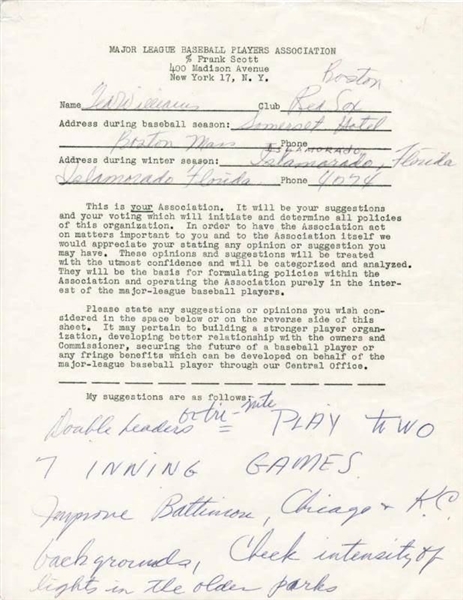 MAJOR LEAGUE BASEBALL PLAYERS ASSOCIATION
% Frank Scott
400 Madison Avenue
New York 17, N. Y.
Boston
Name Ted Williams Club Red Sox
Address during baseball season: Somerset Hotel
Boston Mass Phone
ISLAMORADO
Address during winter season: Islamorado, Florida
Islamorado Florida Phone 4074
This is your Association. It will be your suggestions
and your voting which will initiate and determine all policies
of this organization. In order to have the Association act
on matters important to you and to the Association itself we
would appreciate your stating any opinion or suggestion you
may have. These opinions and suggestions will be treated
with the utmost confidence and will be categorized and analyzed.
They will be the basis for formulating policies within the
Association and operating the Association purely in the inter-
est of the major-league baseball players.
Please state any suggestions or opinions you wish con-
sidered in the space below or on the reverse side of this
sheet. It may pertain to building a stronger player organ-
ization, developing better relationship with the owners and
Commissioner, securing the future of a baseball player or
any fringe benefits which can be developed on behalf of the
major-league baseball player through our Central Office.
My suggestions are as follows:
or tri-nite
Double headers = PLAY TWO
7 INNING GAMES
Improve Baltimore, Chicago + K.C.
backgrounds, Check intensity of
lights in the older parks